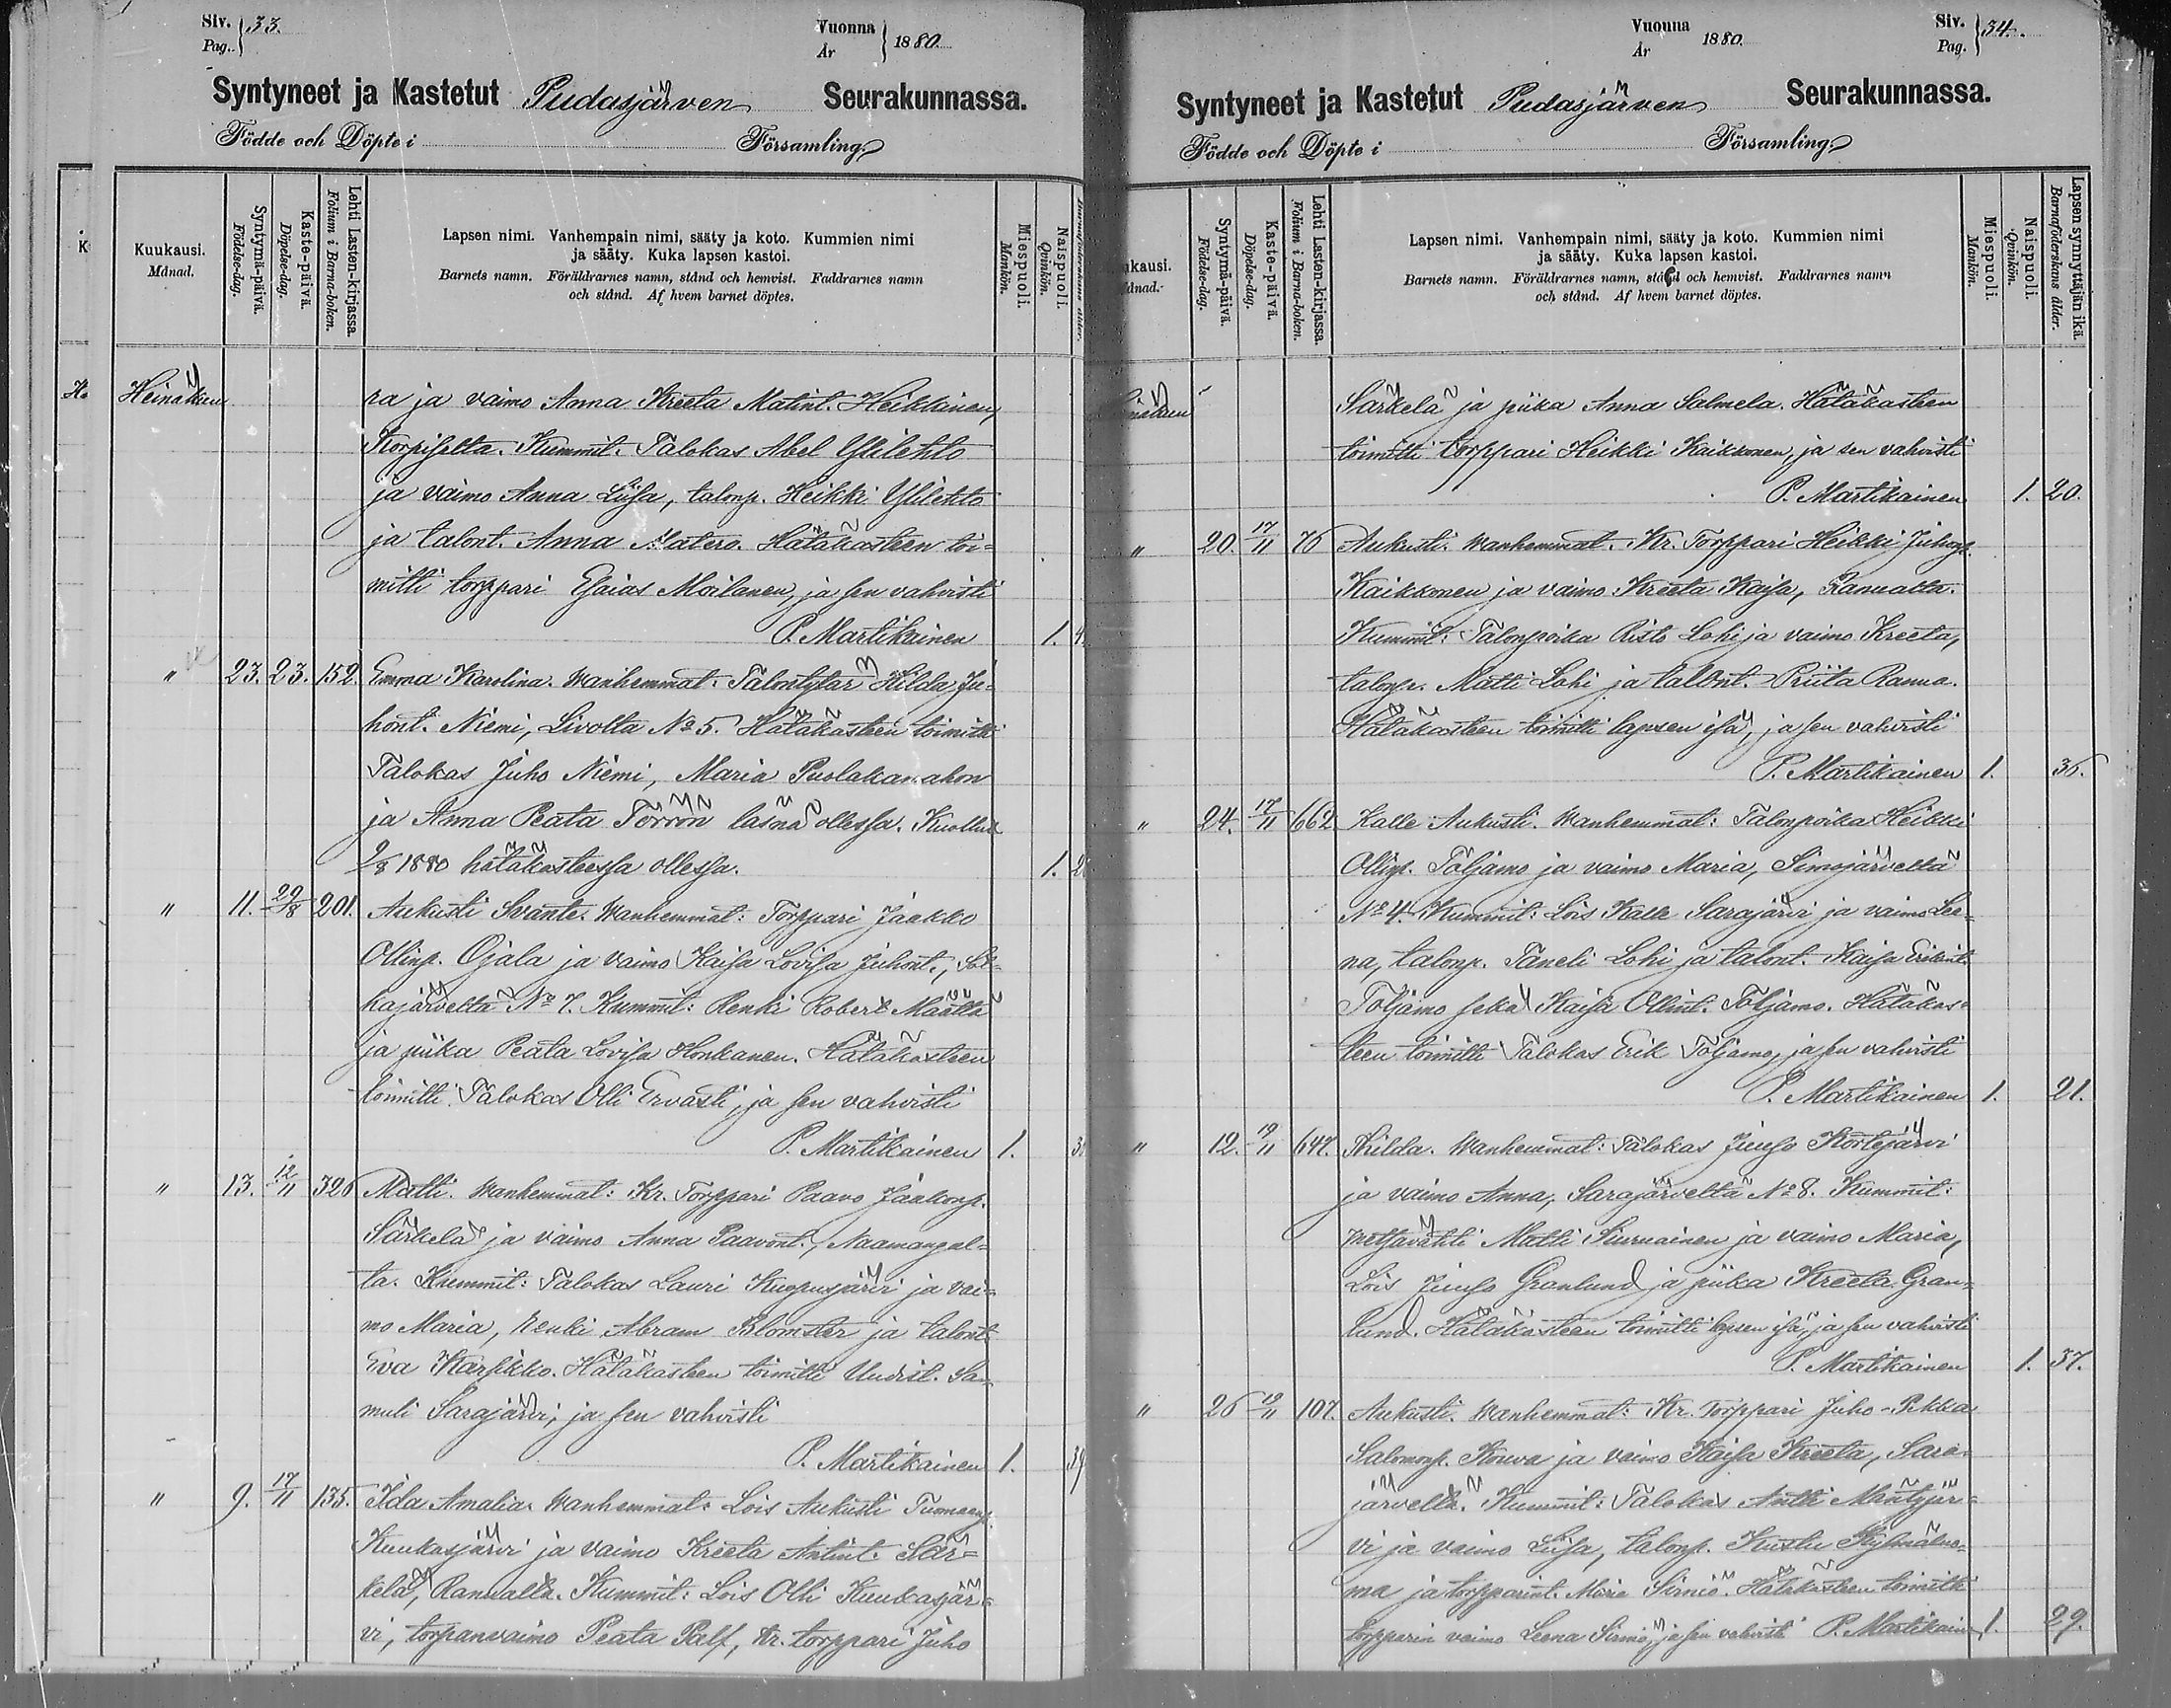 Siv. Pag. 33.
Vuonna År 1880.
Syntyneet ja Kastetut Pudasjärven Seurakunnassa.
Födde och Döpte i Församling
Kuukausi. Månad.
Syntymä-päivä. Födelse-dag.
Kaste-päivä. Döpelse-dag.
Lehti Lasten-kirjassa. Folium i Barna-boken.
Lapsen nimi. Vanhempain nimi, sääty ja koto. Kummien nimi
ja sääty. Kuka lapsen kastoi.
Barnets namn. Föräldrarnes namn, stånd och hemvist. Faddrarnes namn
och stånd. Af hvem barnet döptes.
Miespuoli. Mankön.
Naispuoli. Qvinkön.
Heinäkuu ra ja vaimo Anna Kreeta Matint. Heikkinen,
Korpiselta. Kummit. Talokas Abel Ylilehto
ja vaimo Anna Liisa, talonp. Heikki Ylilehto
ja talont. Anna Matero. Hätäkasteen toi=
mitti torppari Esaias Moilanen, ja sen vahvisti
P. Martikainen 1.
" 23. 23. 152. Emma Karolina. Wanhemmat: Talontytär Hilda Ju=
hont. Niemi, Livolta No 5. Hätäkasteen toimitti
Talokas Juho Niemi, Maria Puolakanahon
ja Anna Peata Törrön läsnä ollessa. Kuollut
2/8 1880 hätäkasteessa ollessa. 1.
" 11. 29/8 201. Aukusti Svante. Wanhemmat: Torppari Jaakko
Ollinp. Ojala ja vaimo Kaisa Lovisa Juhont.,
kajärveltä No 7. Kummit: Renki Robert Määttä
ja piika Peata Lovisa Honkanen. Hätäkasteen
toimitti Talokas Olli Ervasti, ja sen vahvisti
P. Martikainen 1.
" 13. 12/11 326 Matti. Wanhemmat: Kr. Torppari Paavo Jaakonp.
Särkelä ja vaimo Anna Paavont., Naamangal=
ta. Kummit: Talokas Lauri Kuopusjärvi ja vai=
mo Maria, renki Abram Blomster ja talont.
Eva Karsikko. Hätäkasteen toimitti Uudist. Sa=
muli Sarajärvi, ja sen vahvisti
P. Martikainen 1. 39
" 9. 17/11 135. Ida Amalia. Wanhemmat: Lois Aukusti Tuomaanp.
Kuukasjärvi ja vaimo Kreeta Antint. Sär=
kelä, Ranualta. Kummit: Lois Olli Kuukasjär=
vi, torpanvaimo Peata Palf, Kr. torppari Juho
Vuonna År 1880.
Siv. Pag. 34.
Syntyneet ja Kastetut Pudasjärven Seurakunnassa.
Födde och Döpte i Församling
Syntymä-päivä. Födelse-dag.
Kaste-päivä. Döpelse-dag.
Lehti Lasten-kirjassa. Folium i Barna-boken.
Lapsen nimi. Vanhempain nimi, sääty ja koto. Kummien nimi
ja sääty. Kuka lapsen kastoi.
Barnets namn. Föräldrarnes namn, stånd och hemvist. Faddrarnes namn
och stånd. Af hvem barnet döptes.
Miespuoli. Mankön.
Naispuoli. Qvinkön.
Lapsen synnyttäjän ikä. Barnaföderskans ålder.
Särkelä ja piika Anna Salmela. Hätäkasteen
toimitti torppari Heikki Kaikkonen, ja sen vahvisti
P. Martikainen 1. 20.
" 20. 17/11 76 Aukusti. Wanhemmat. Kr. Torppari Heikki Juhonp.
Kaikkonen ja vaimo Kreeta Kaisa, Ranualta.
Kummit: Talonpoika Risto Lohi ja vaimo Kreeta,
talonp. Matti Lohi ja talont. Priita Ranua.
Hätäkasteen toimitti lapsen isä, ja sen vahvisti
P. Martikainen 1. 36.
" 24. 17/11 662 Kalle Aukusti. Wanhemmat: Talonpoika Heikki
Ollinp. Töljamo ja vaimo Maria, Simojärveltä
No 4. Kummit: Lois Kalle Sarajärvi ja vaimo Lee=
na, talonp. Taneli Lohi ja talont. Kaisa Erikint.
Töljamo sekä Kaisa Ollint. Töljamo. Hätäkas=
teen toimitti Talokas Erik Töljamo, ja sen vahvisti
P. Martikainen 1. 21.
" 12. 19/11 647. Hilda. Wanhemmat: Talokas Juuso Kortejärvi
ja vaimo Anna, Sarajärveltä No 8. Kummit:
metsävahti Matti Siuruainen ja vaimo Maria,
Lois Juuso Granlund ja piika Kreeta Gran=
lund. Hätäkasteen toimitti lapsen isä, ja sen vahvisti
P. Martikainen 1. 37.
" 26 19/11 107. Aukusti. Wanhemmat: Kr. Torppari Juho-Pekka
Salomonp. Kouva ja vaimo Kaisa Kreeta, Sara=
järveltä. Kummit: Talokas Antti Mäntyjär=
vi ja vaimo Liisa, talonp. Kustu Kylmäluo=
ma ja torpparint. Maria Sirniö. Hätäkasteen toimitti
torpparin vaimo Leena Sirniö, ja sen vahvisti P. Martikainen 1. 29.